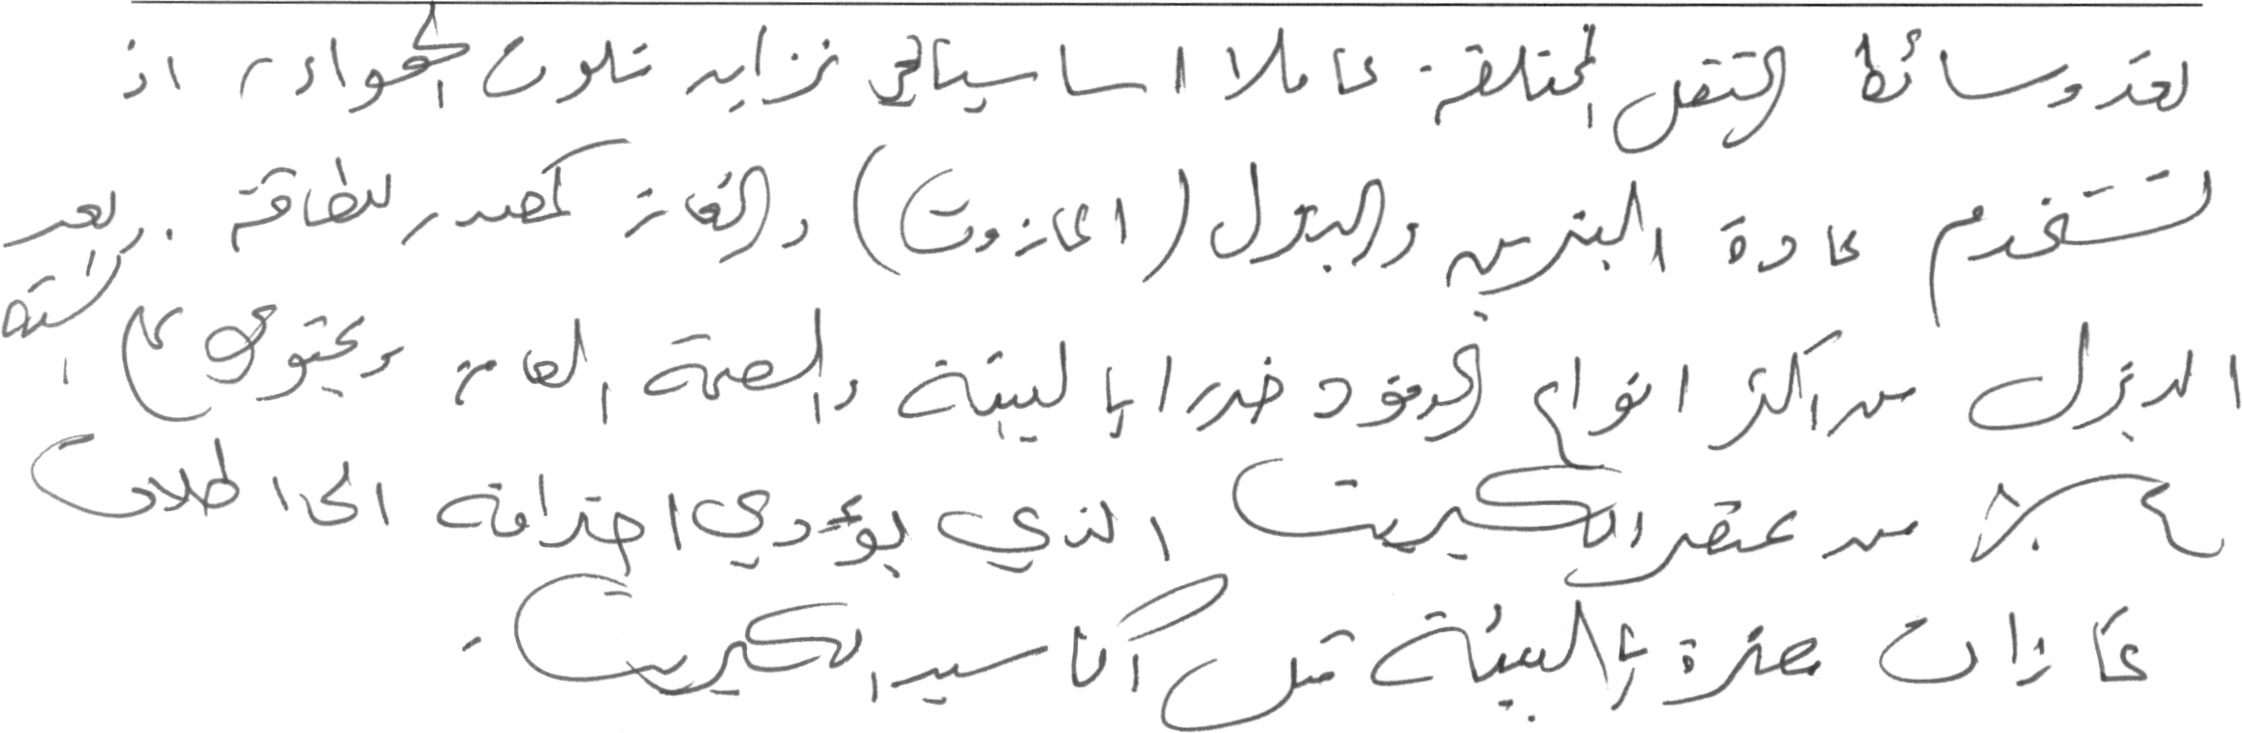 تعد وسائط النقل المختلفة عاملا اساسيا في تزايد تلوث الهواء، اذ
تستخدم عادة البنزين والديزل (المازوت) والغاز كمصدر للطاقة. ويعد
الديزل من اكثر انواع الوقود ضررا بالبيئة والصحة العامة ويحتوي على نسبة
من عنصر الكبريت الذي يؤدي احتراقه الى اطلاق
غازات مضرة بالبيئة مثل اكاسيد الكبريت.